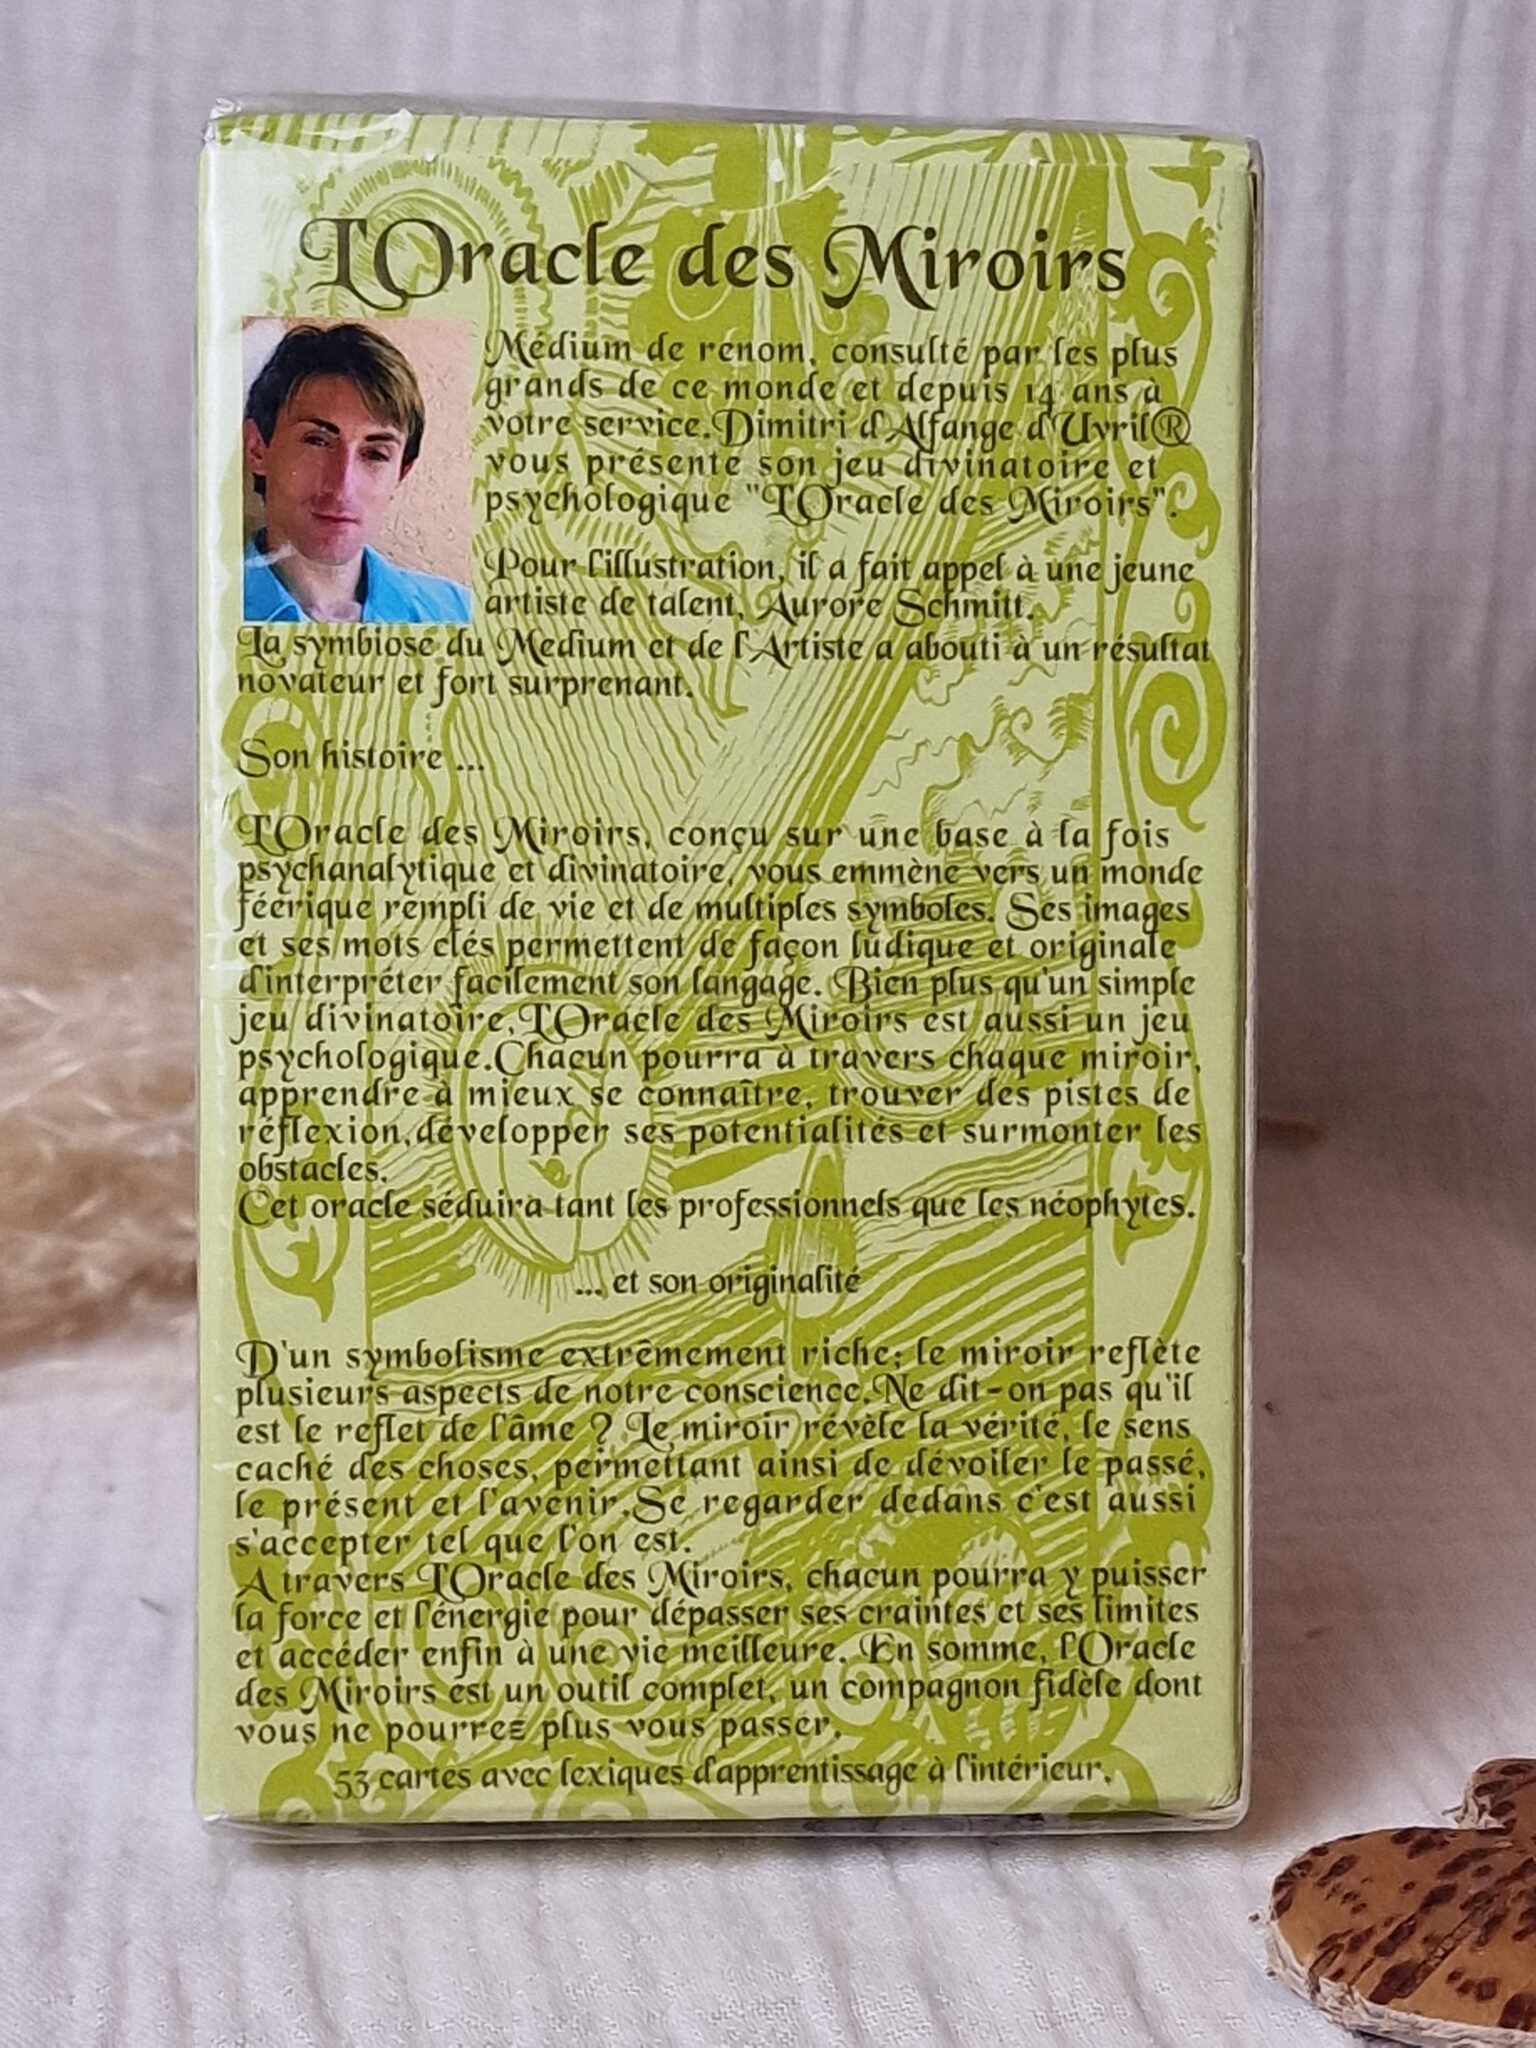 L'Oracle des Miroirs
Médium de renom, consulté par les plus
grands de ce monde et depuis 14 ans à
votre service.Dimitri d'Alfange d'Uvril®
vous présente son jeu divinatoire et
psychologique "L'Oracle des Miroirs".
Pour l'illustration, il a fait appel à une jeune
artiste de talent, Aurore Schmitt.
La symbiose du Medium et de l'Artiste a abouti à un résultat
novateur et fort surprenant.
Son histoire ...
L'Oracle des Miroirs, conçu sur une base à la fois
psychanalytique et divinatoire, vous emmène vers un monde
féérique rempli de vie et de multiples symboles. Ses images
et ses mots clés permettent de façon ludique et originale
d'interpréter facilement son langage. Bien plus qu'un simple
jeu divinatoire,L'Oracle des Miroirs est aussi un jeu
psychologique.Chacun pourra à travers chaque miroir,
apprendre à mieux se connaître, trouver des pistes de
réflexion,développer ses potentialités et surmonter les
obstacles.
Cet oracle séduira tant les professionnels que les néophytes.
... et son originalité
D'un symbolisme extrêmement riche; le miroir reflète
plusieurs aspects de notre conscience.Ne dit-on pas qu'il
est le reflet de l'âme ? Le miroir révèle la vérité, le sens
caché des choses, permettant ainsi de dévoiler le passé,
le présent et l'avenir.Se regarder dedans c'est aussi
s'accepter tel que l'on est.
A travers L'Oracle des Miroirs, chacun pourra y puisser
la force et l'énergie pour dépasser ses craintes et ses limites
et accéder enfin à une vie meilleure. En somme, l'Oracle
des Miroirs est un outil complet, un compagnon fidèle dont
vous ne pourrez plus vous passer.
53 cartes avec lexiques d'apprentissage à l'intérieur.